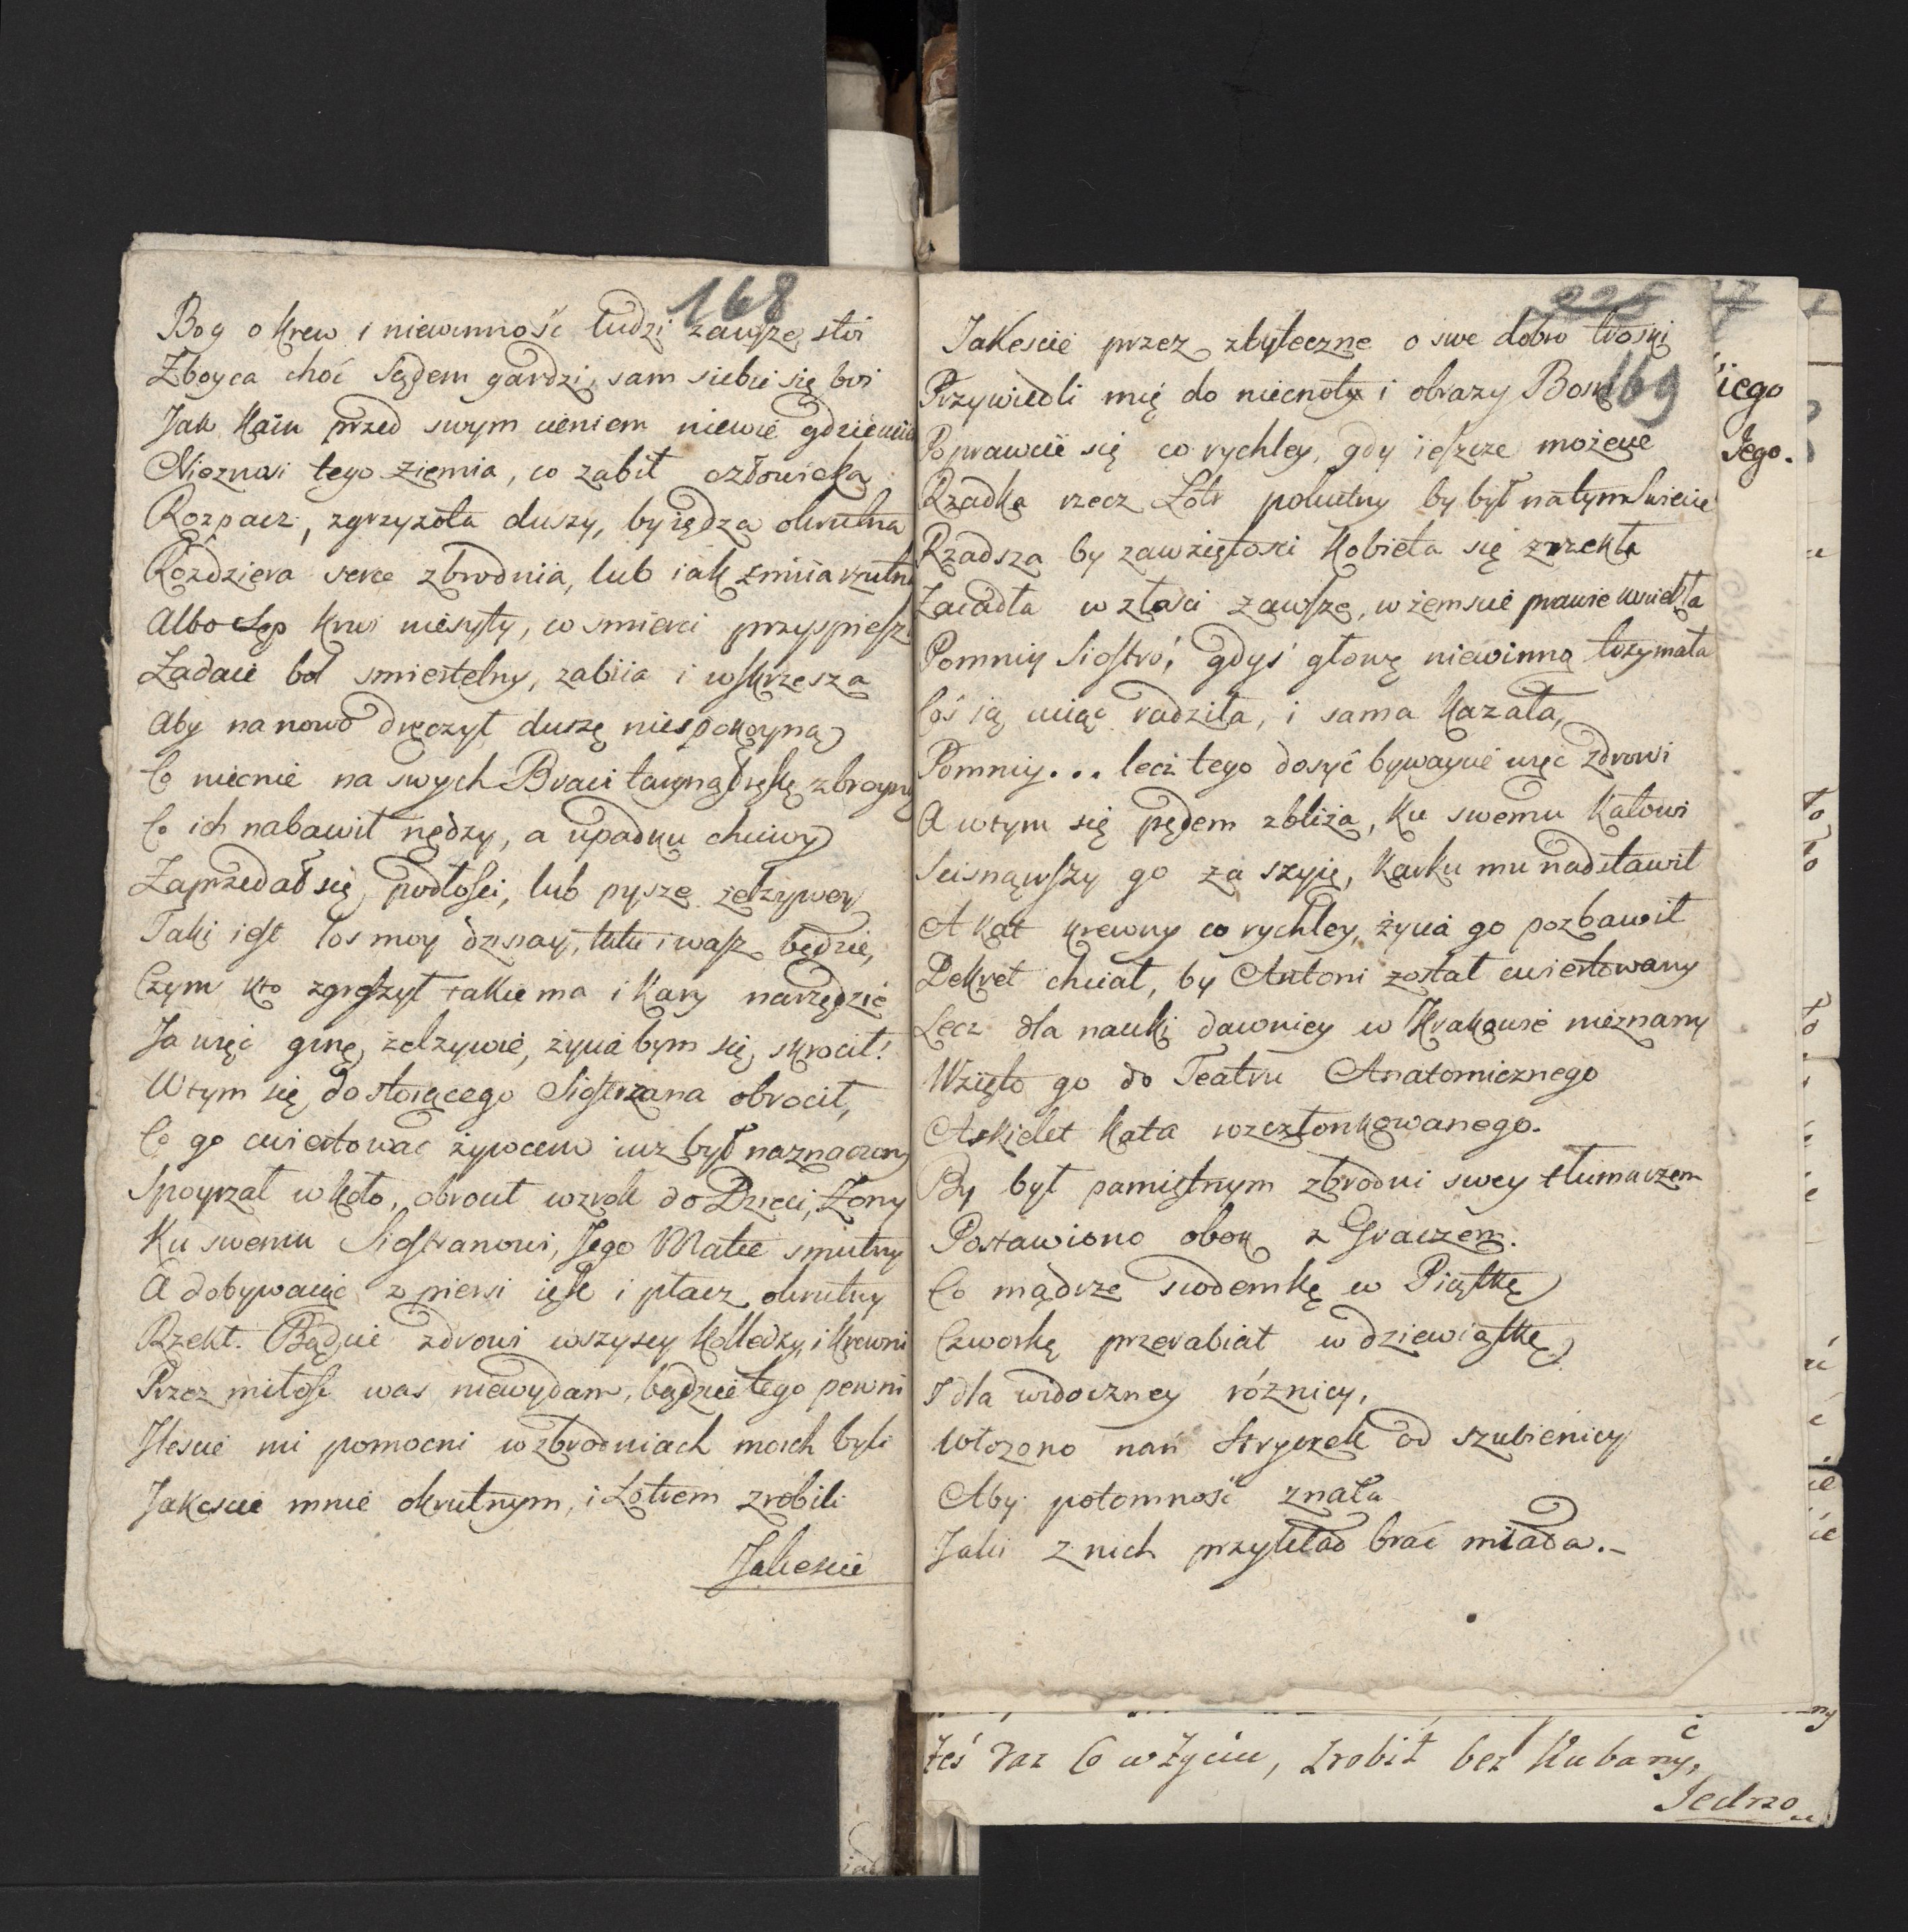 168
Bog o krew i niewinność ludzi zawsze stoi
Zboyca choć Sądem gardzi, sam siebie się boi
Jak Kain przed swym cieniem niewie gdzie
Nieznosi tego ziemia, co zabił człowieka
Rozpacz, zgryzota duszy, by iędza okrutna
Rozdziera serce zbrodnia, lub iak zmiia
Albo Sęp krwi niesyty, co smierci przyspiesz
Zadaie bol smiertelny, zabiia i wskrzesza
Aby na nowo dręczył duszę niespokoyną
Co niecnie na swych Braci targnął rękę zbroyną
Co ich nabawił nędzy, a upadku chciwy
Zaprzedał się podłości, lub pysze zelzywey
Taki iest los moy dzisiay, tuż i wasz będzie,
Czym kto zgrzeszył takie ma i kary narzędzie
Ja więc ginę zelzywie, życia bym się skrocił!
Wtym się do stoiącego Siostrzana obrocił,
Co go cwiertować żywcem iuz był naznaczony
Spoyrzał w koło, obrocił wzrok do Dzieci, Zony
Ku swemu Siostranowi, Jego Matce smutny
A dobywaiąc z piersi ięk i płacz okrutny
Rzekł. Bądzcie zdrowi wszyscy Kolledzy i krewni
Przez miłość was niewydam, bądzcie tego pewni
Jlescie mi pomocni w zbrodniach moich byli
Jakescie mnie okrutnym, i Łotrem zrobili
Jakescie
225
169
Jakescie przez zbyteczne o swe dobro troski
Przywiedli mię do niecnoty i obrazy Bosk
Poprawcie się co rychley, gdy ieszcze możecie
Rzadka rzecz Łotr pokutny by był na tym swiecie
Rzadsza by zawziętosci kobieta się zrzekła
Zaiadła w złości zawsze, w zemscie prawie wsciekła
Pomniy Siostro, gdyś głowę niewinną trzymała
Coś ią uciąć radziła, i sama kazała,
Pomniy... lecz tego dosyć bywaycie więc zdrowi
A wtym się pędem zbliża, ku swemu katowi
Scisnąwszy go za szyię, karku mu nadstawił
A kat krewny co rychley, życia go pozbawił
Dekret chciał, by Antoni został cwiertowany
Lecz dla nauki dawniey w Krakowie nieznany
Wzięto go do Teatru Anatomicznego
A skielet kata rozczłonkowanego.
By był pamiętnym zbrodni swey tłumaczem
Postawiono obok z Graczem.
Co mądrze siodemkę w Piątkę
Czworkę przerabiał w dziewiątkę
I dla widoczney rożnicy,
Włozono nań stryczek od szubienicy
Aby potomność znała
Jaki z nich przykład brać miała.–
iego
Jego.
żeś raz Co w życiu, zrobił bez Kubany,
Jedrzo